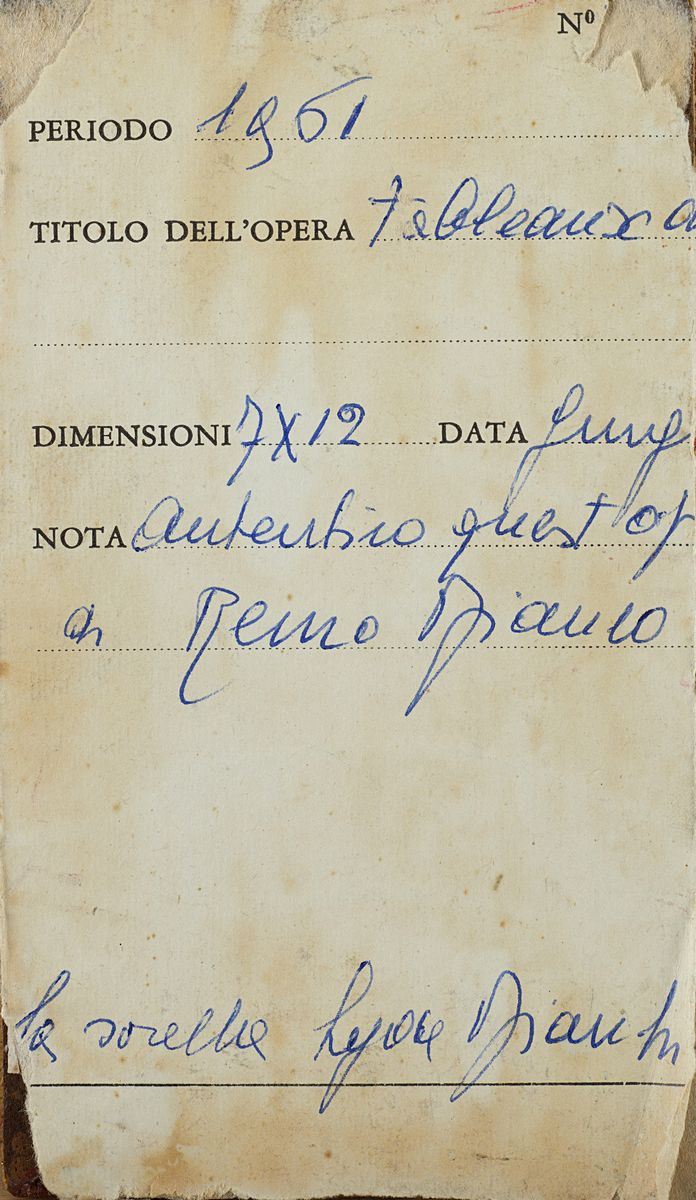 Nº
PERIODO 1961
TITOLO DELL'OPERA Tableaux d
DIMENSIONI 7X12 DATA Giug
NOTA Autentico quest op
di Remo Bianco
la sorella Lyda Bianchi